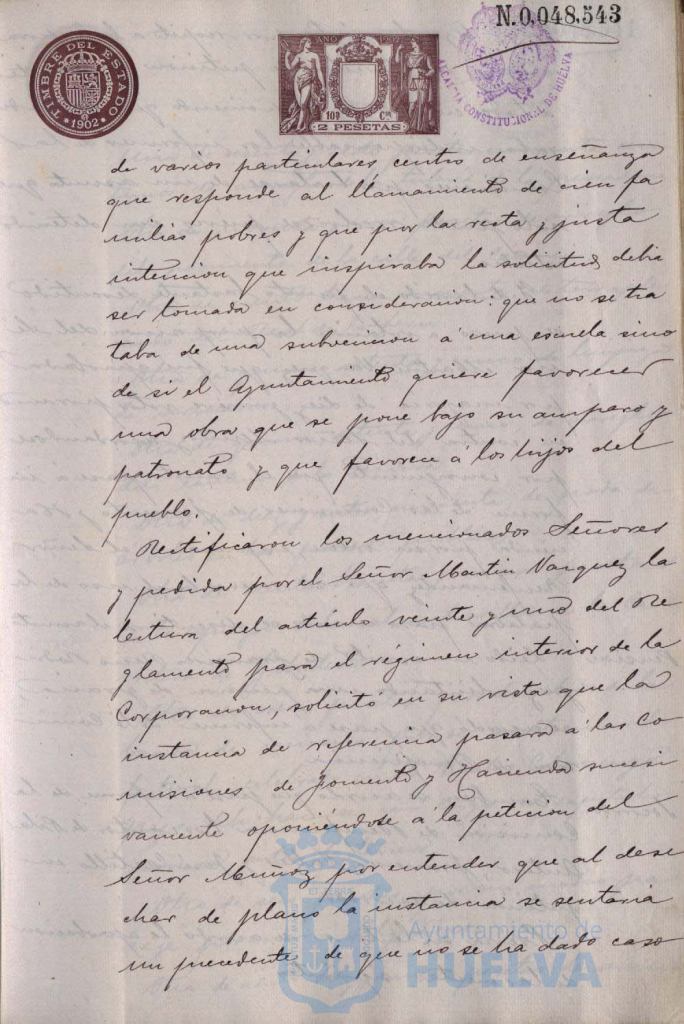 N.0,048,543
TIMBRE DEL ESTADO
1902
AÑO 1902
10ª Cse
2 PESETAS
ALCALDIA CONSTITUCIONAL DE HUELVA
de varios particulares centro de enseñanza
que responde al llamamiento de cien fa
milias pobres y que por la recta y justa
intencion que inspiraba la solicitud debia
ser tomada en consideracion: que no se tra
taba de una subvencion á una escuela sino
de si el Ayuntamiento quiere favorecer
una obra que se pone bajo su amparo y
patronato y que favorece á los hijos del
pueblo.
Rectificaron los mencionados Señores
y pedida por el Señor Martin Vazquez la
lectura del artículo veinte y uno del Re
glamento para el régimen interior de la
Corporacion, solicitó en su vista que la
instancia de referencia pasara á las Co
misiones de Fomento y Hacienda sucesi
vamente oponiéndose á la peticion del
Señor Muñoz por entender que al dese
char de plano la instancia se sentaria
un precedente de que no se ha dado caso
Ayuntamiento de
HUELVA